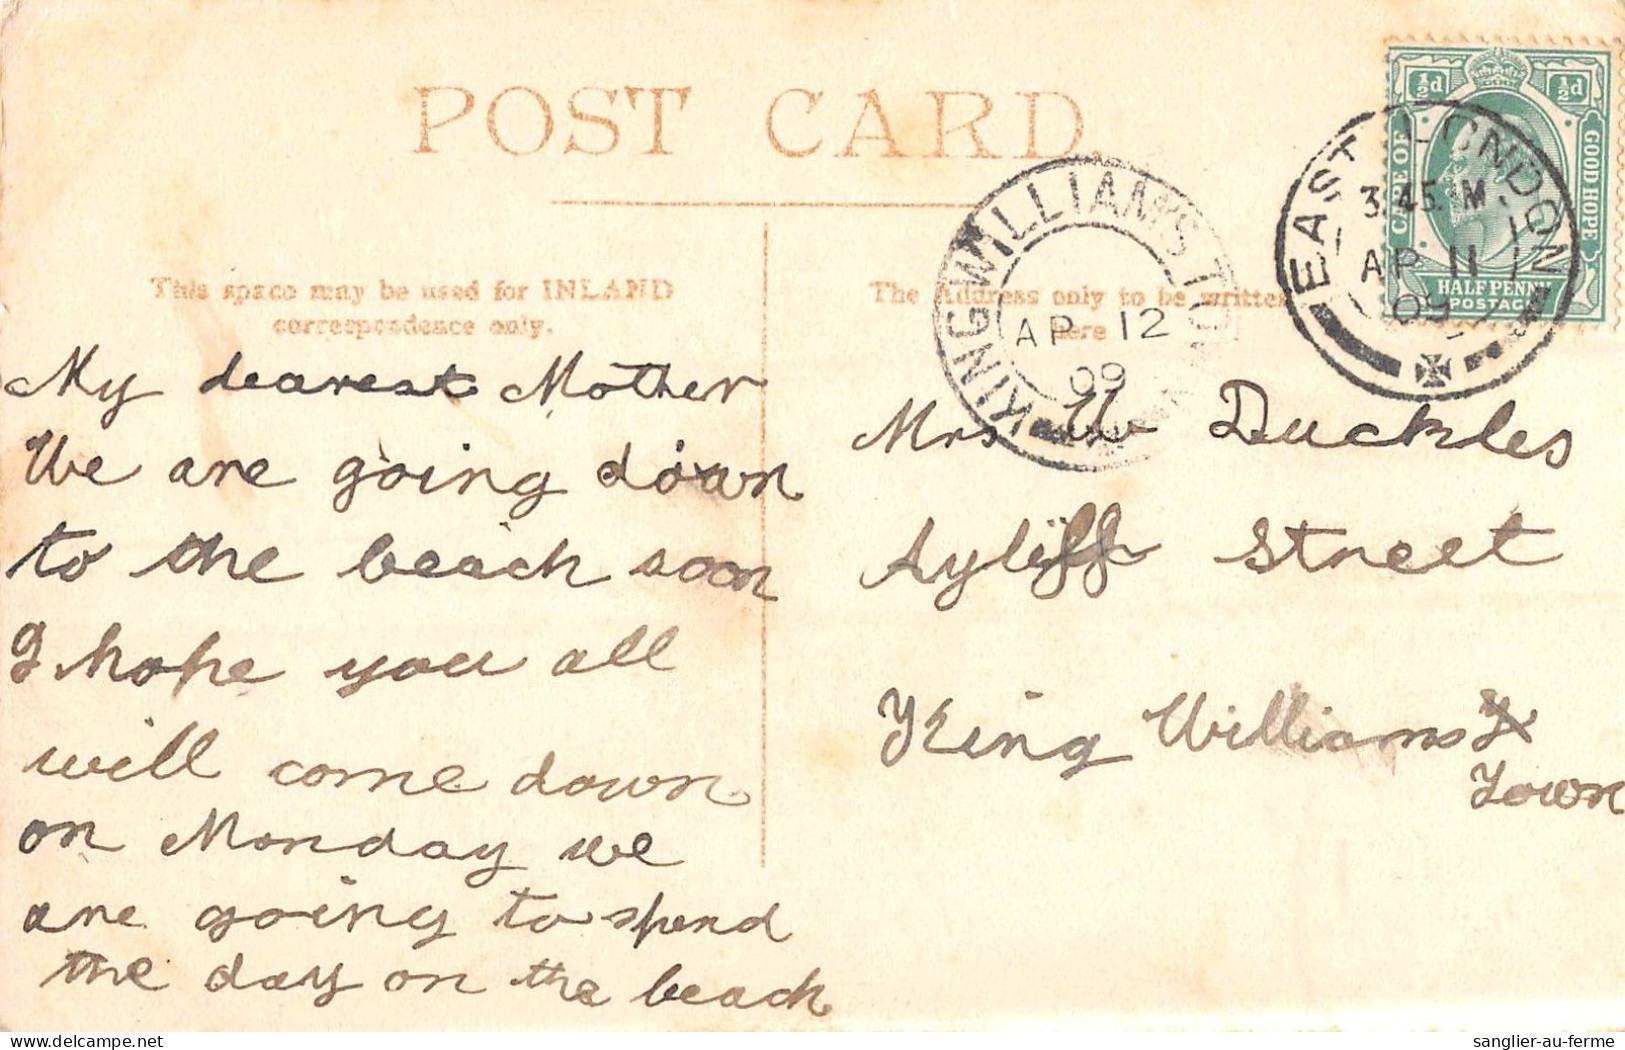 POST CARD.
This space may be used for INLAND
correspondence only.
The Address only to be written
here
KING WILLIAMS TOWN
AP 12
09
EAST LONDON
3.45 M
AP 11
09
½d ½d
CAPE OF GOOD HOPE
HALFPENNY
POSTAGE
My dearest Mother
We are going down
to the beach soon
I hope you all
will come down
on Monday we
are going to spend
the day on the beach
Mrs W Duckles
Ayliff Street
King Williams
Town
sanglier-au-ferme